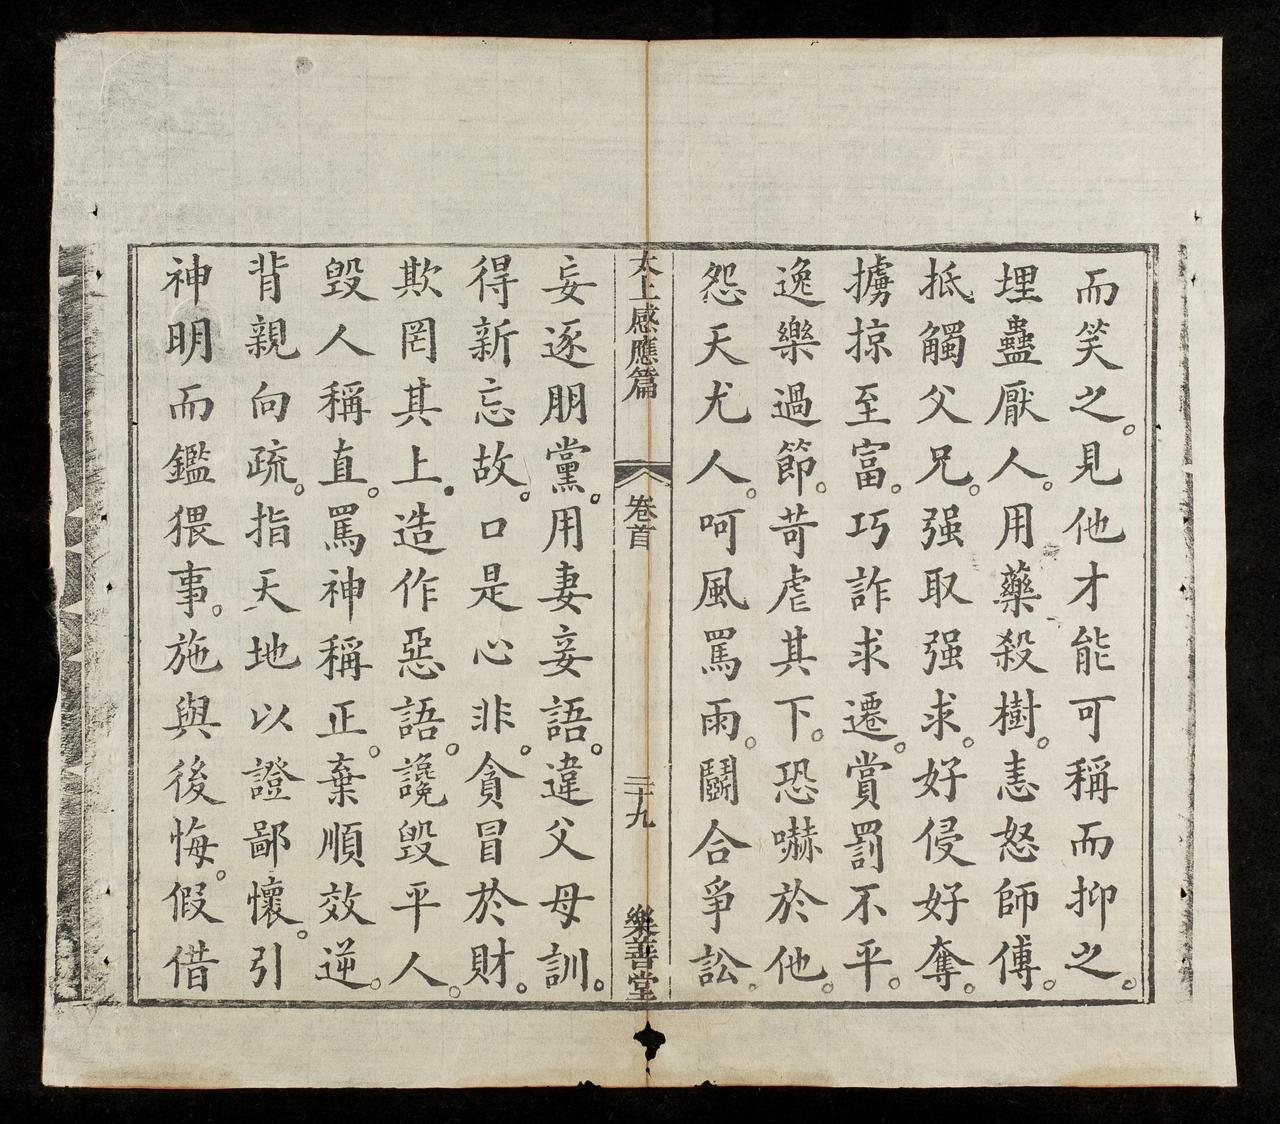 而笑之。見他才能可稱而抑之。
埋蠱厭人。用藥殺樹。恚怒師傅。
抵觸父兄。强取强求。好侵好奪。
擄掠至富。巧詐求遷。賞罰不平。
逸樂過節。苛虐其下。恐嚇於他。
怨天尤人。呵風罵雨。鬬合爭訟。
太上感應篇 卷首 三十九 樂善堂
妄逐朋黨。用妻妾語。違父母訓。
得新忘故。口是心非。貪冒於財。
欺罔其上。造作惡語。讒毀平人。
毀人稱直。罵神稱正。棄順效逆。
背親向疏。指天地以證鄙懷。引
神明而鑑猥事。施與後悔。假借